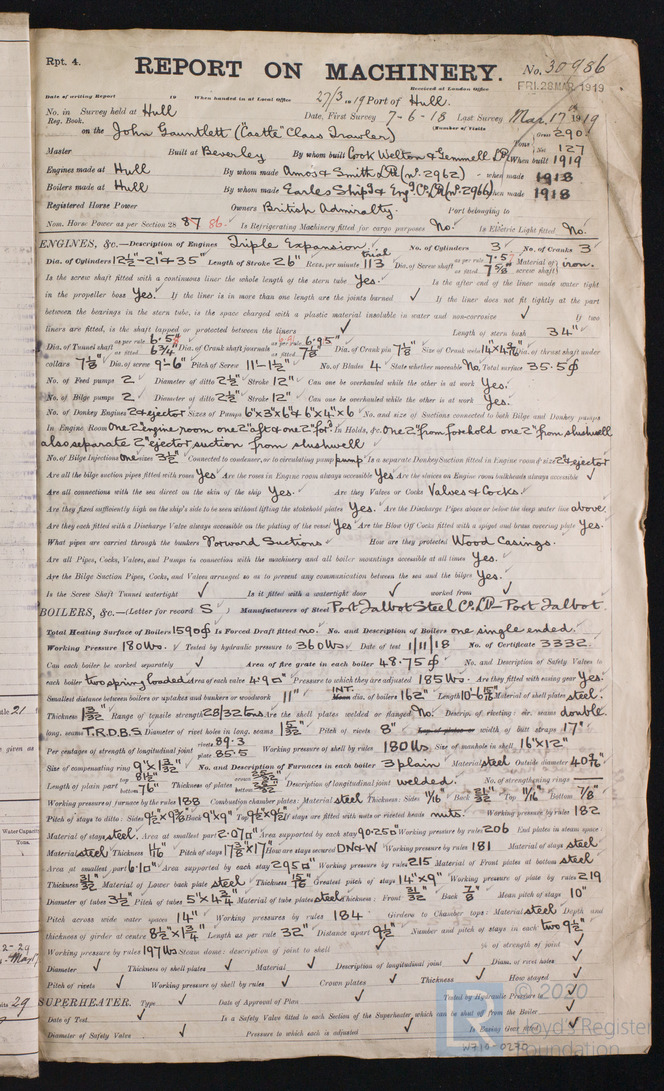 Rpt. 4.
REPORT ON MACHINERY.
No. 30986
FRI. 28 MAR. 1919
Date of writing Report 19 When handed in at Local Office 27/3 19 Port of Hull.
Received at London Office
No. in Survey held at Hull Date, First Survey 7-6-18 Last Survey Mar. 17th 1919
Reg. Book. (Number of Visits
on the John Gauntlett ("Castle" Class Trawler) Tons Gross 290
Net 127
Master Built at Beverley By whom built Cook Welton & Gemmell Ld When built 1919
Engines made at Hull By whom made Amos & Smith Ld (No. 2962) when made 1918
Boilers made at Hull By whom made Earles Shipg & Engg Co. Ld (No. 2966) when made 1918
Registered Horse Power Owners British Admiralty. Port belonging to
Nom. Horse Power as per Section 28 87 86. Is Refrigerating Machinery fitted for cargo purposes No. Is Electric Light fitted No.
ENGINES, &c.—Description of Engines Triple Expansion No. of Cylinders 3 No. of Cranks 3
Dia. of Cylinders 12½"-21"-35" Length of Stroke 26" Revs. per minute trial 113 Dia. of Screw shaft as per rule 7.5" as fitted 7⅝" Material of screw shaft iron.
Is the screw shaft fitted with a continuous liner the whole length of the stern tube Yes. Is the after end of the liner made water tight
in the propeller boss Yes. If the liner is in more than one length are the joints burned ✓ If the liner does not fit tightly at the part
between the bearings in the stern tube, is the space charged with a plastic material insoluble in water and non-corrosive ✓ If two
liners are fitted, is the shaft lapped or protected between the liners ✓ Length of stern bush 34"
Dia. of Tunnel shaft as per rule 6.5" as fitted 6¾" Dia. of Crank shaft journals as per rule 6.95" as fitted 7⅛" Dia. of Crank pin 7⅛" Size of Crank webs Dia. of thrust shaft under
collars 7⅛" Dia. of screw 9'-6" Pitch of Screw 11'-1½" No. of Blades 4 State whether moveable No. Total surface 35.5
No. of Feed pumps 2 Diameter of ditto 2½" Stroke 12" Can one be overhauled while the other is at work Yes.
No. of Bilge pumps 2 Diameter of ditto 2½" Stroke 12" Can one be overhauled while the other is at work Yes.
No. of Donkey Engines 2 & ejector Sizes of Pumps 6"x3"x6" & 6"x4"x6 No. and size of Suctions connected to both Bilge and Donkey pumps
In Engine Room One 2" engine room one 2" aft & one 2" for'd In Holds, &c. One 2" from forehold one 2" from slushwell
also separate 2" ejector suction from slushwell
No. of Bilge Injections one sizes 3½" Connected to condenser, or to circulating pump pump Is a separate Donkey Suction fitted in Engine room & size 2" ejector
Are all the bilge suction pipes fitted with roses Yes Are the roses in Engine room always accessible Yes Are the sluices on Engine room bulkheads always accessible ✓
Are all connections with the sea direct on the skin of the ship Yes. Are they Valves or Cocks Valves & Cocks.
Are they fixed sufficiently high on the ship's side to be seen without lifting the stokehold plates Yes. Are the Discharge Pipes above or below the deep water line above.
Are they each fitted with a Discharge Valve always accessible on the plating of the vessel Yes Are the Blow Off Cocks fitted with a spigot and brass covering plate Yes.
What pipes are carried through the bunkers Forward Suctions How are they protected Wood Casings.
Are all Pipes, Cocks, Valves, and Pumps in connection with the machinery and all boiler mountings accessible at all times Yes.
Are the Bilge Suction Pipes, Cocks, and Valves arranged so as to prevent any communication between the sea and the bilges Yes.
Is the Screw Shaft Tunnel watertight ✓ Is it fitted with a watertight door ✓ worked from ✓
BOILERS, &c.—(Letter for record S) Manufacturers of Steel Port Talbot Steel Co. Ld - Port Talbot.
Total Heating Surface of Boilers 1590 Is Forced Draft fitted no. No. and Description of Boilers one single ended.
Working Pressure 180 lbs. Tested by hydraulic pressure to 360 lbs Date of test 1/11/18 No. of Certificate 3332.
Can each boiler be worked separately ✓ Area of fire grate in each boiler 48.75 No. and Description of Safety Valves to
each boiler two spring loaded Area of each valve 4.9 Pressure to which they are adjusted 185 lbs. Are they fitted with easing gear Yes.
Smallest distance between boilers or uptakes and bunkers or woodwork 11" INT. dia. of boilers 162" Length Material of shell plates steel.
Thickness 1 3/32 Range of tensile strength 28/32 tons Are the shell plates welded or flanged No. Descrip. of riveting: cir. seams double.
long. seams T.R.D.B.S. Diameter of rivet holes in long. seams Pitch of rivets 8" width of butt straps 17"
Per centages of strength of longitudinal joint rivets 89.3 plate 85.5 Working pressure of shell by rules 180 lbs Size of manhole in shell 16"x12"
Size of compensating ring No. and Description of Furnaces in each boiler 3 plain Material steel Outside diameter
Length of plain part top bottom 76" Thickness of plates crown bottom Description of longitudinal joint welded. No. of strengthening rings
Working pressure of furnace by the rules 188 Combustion chamber plates: Material steel Thickness: Sides 11/16" Back Top 11/16" Bottom 7/8"
Pitch of stays to ditto: Sides Back 9"x9" Top If stays are fitted with nuts or riveted heads nuts. Working pressure by rules 182
Material of stays steel. Area at smallest part 2.07 Area supported by each stay 90.25 Working pressure by rules 206 End plates in steam space:
Material steel Thickness Pitch of stays How are stays secured D.N & W Working pressure by rules 181 Material of stays steel
Area at smallest part 6.10 Area supported by each stay 295 Working pressure by rules 215 Material of Front plates at bottom steel
Thickness 31/32 Material of Lower back plate steel Thickness 15/16 Greatest pitch of stays 14"x9" Working pressure of plate by rules 219
Diameter of tubes 3½" Pitch of tubes 5"x4¾" Material of tube plates steel Thickness: Front 31/32 Back 7/8 Mean pitch of stays 10"
Pitch across wide water spaces 14" Working pressures by rules 184 Girders to Chamber tops: Material steel Depth and
thickness of girder at centre 8½"x1¾" Length as per rule 32" Distance apart 9½" Number and pitch of stays in each two 9½"
Working pressure by rules 197 lbs Steam dome: description of joint to shell ✓ % of strength of joint ✓
Diameter ✓ Thickness of shell plates ✓ Material ✓ Description of longitudinal joint ✓ Diam. of rivet holes ✓
Pitch of rivets ✓ Working pressure of shell by rules ✓ Crown plates ✓ Thickness ✓ How stayed ✓
SUPERHEATER. Type ✓ Date of Approval of Plan ✓ Tested by Hydraulic Pressure to ✓
Date of Test ✓ Is a Safety Valve fitted to each Section of the Superheater which can be shut off from the Boiler ✓
Diameter of Safety Valve ✓ Pressure to which each is adjusted ✓ Is Easing Gear fitted ✓
© 2020
Lloyd's Register
Foundation
W710-0270